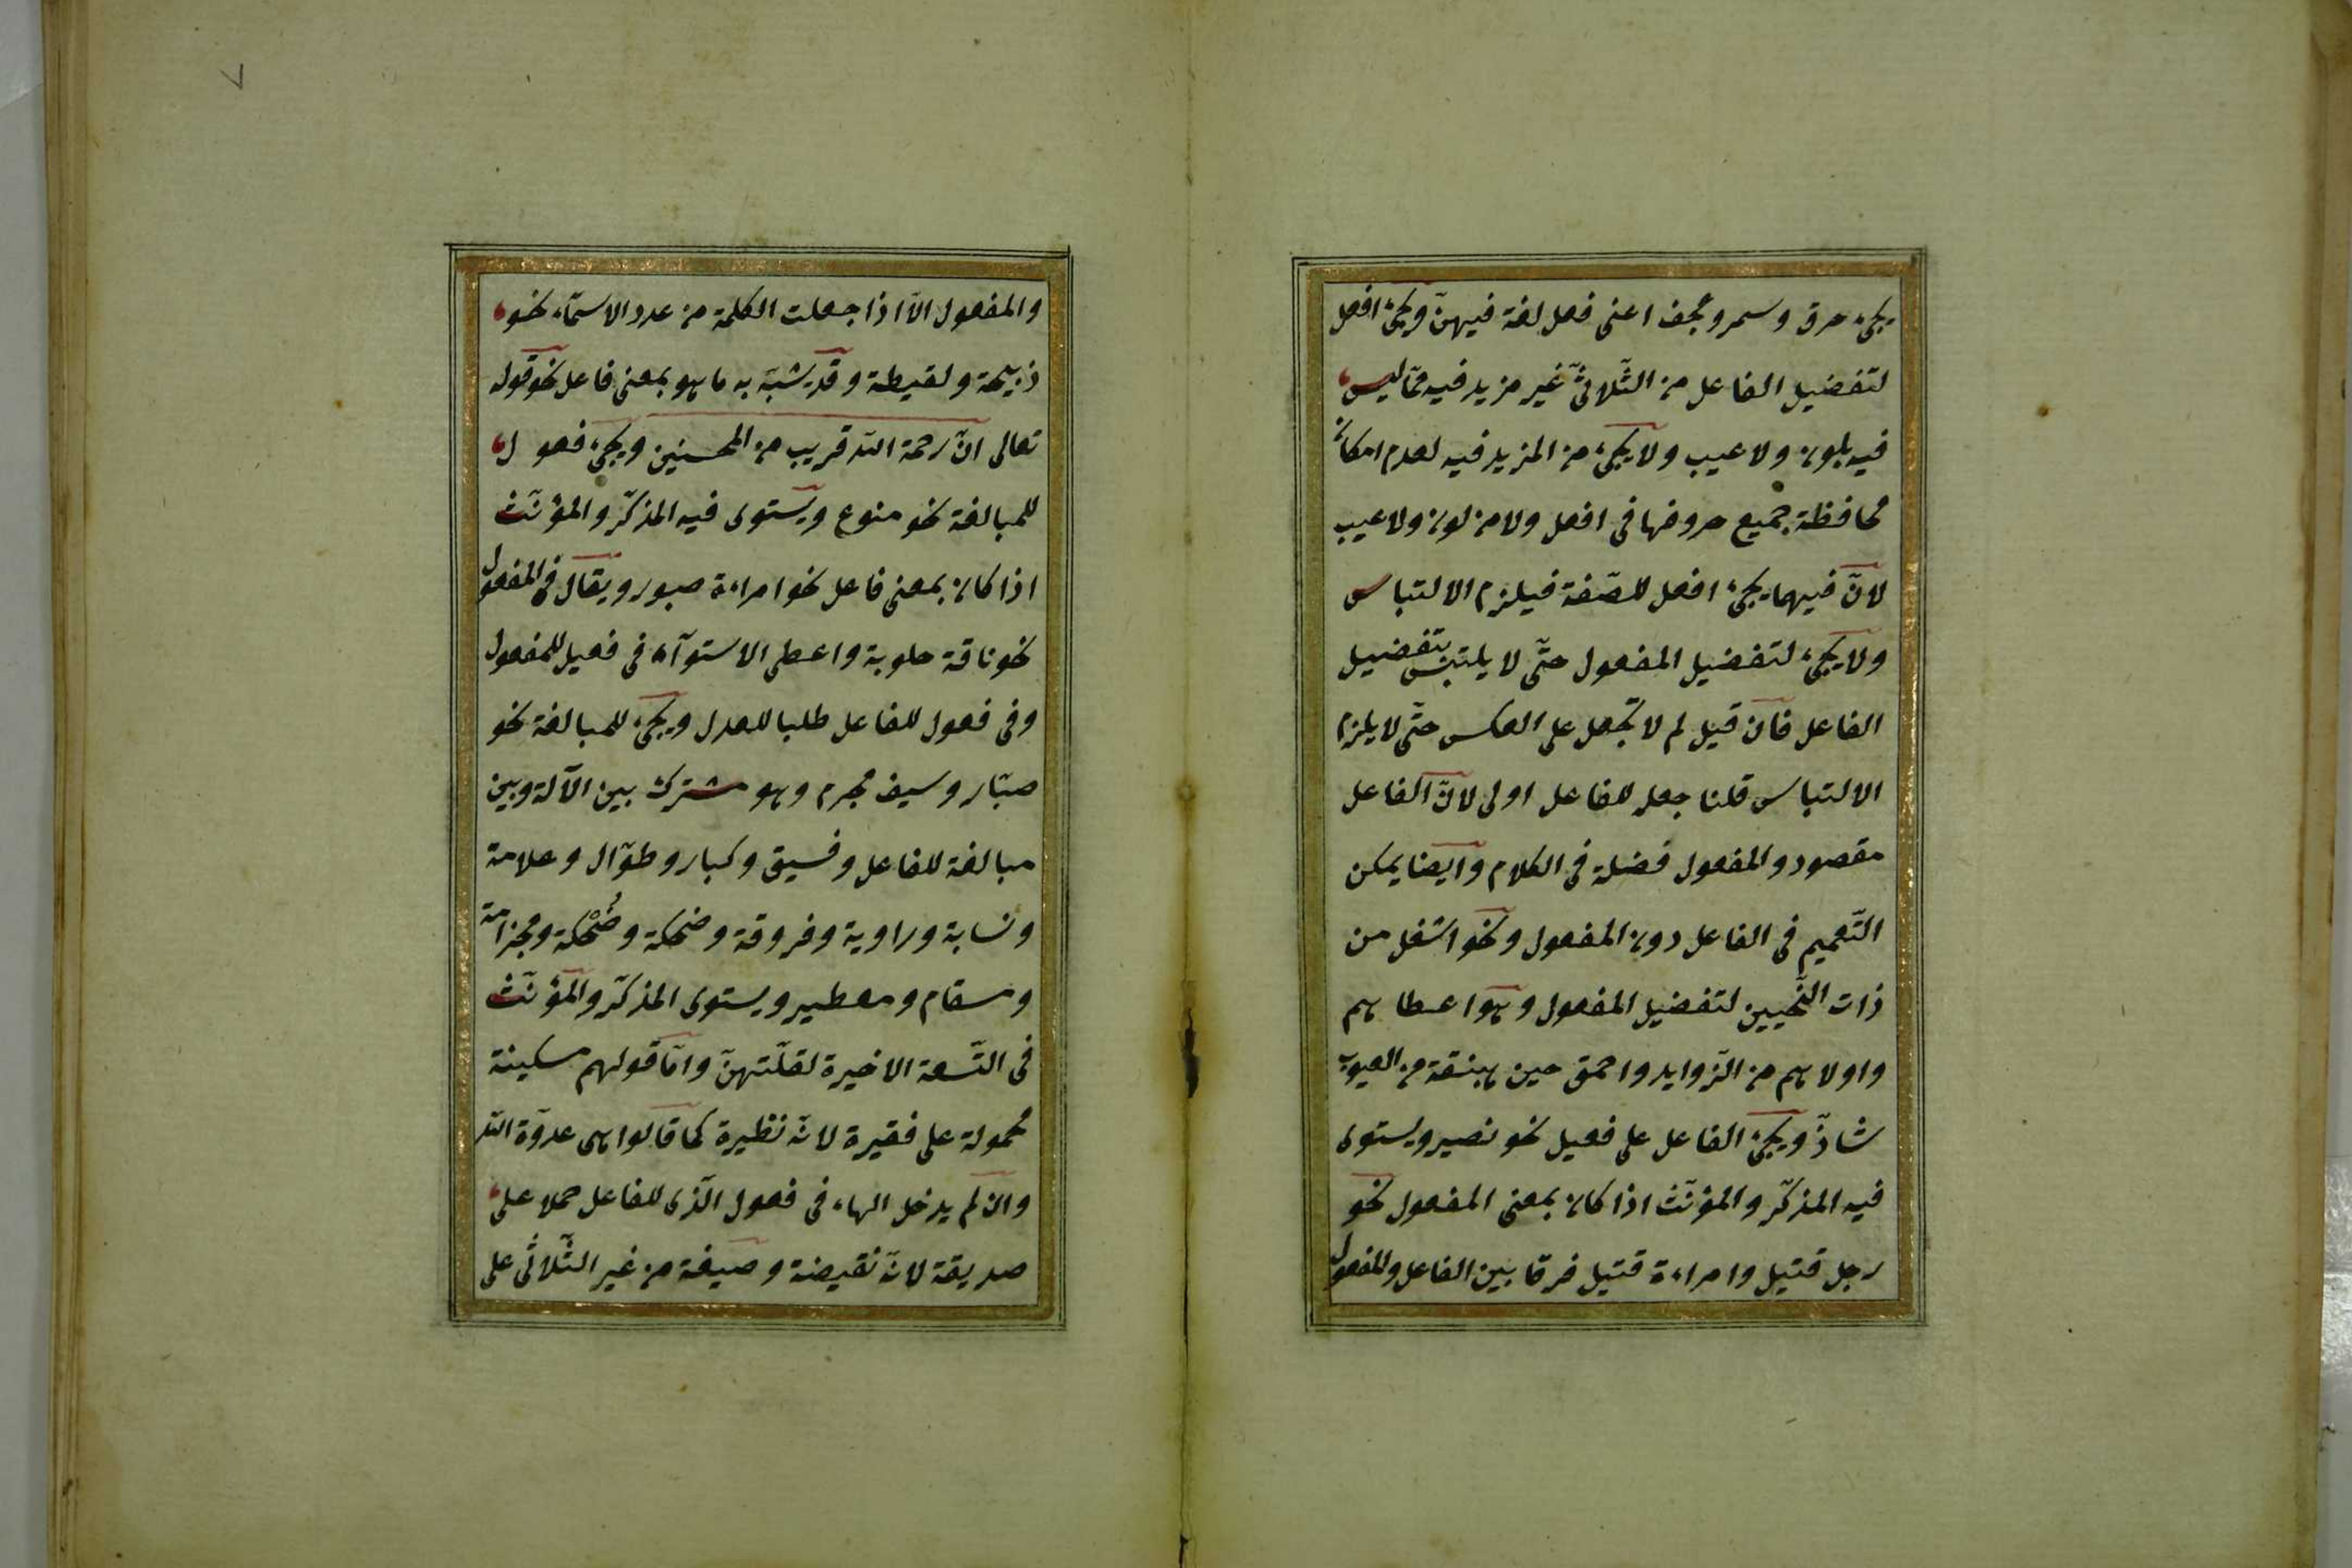 يجئ حرق وسمر وعجف اعنى فعل لغة فيهنّ ويجئ افعل
لتفضيل الفاعل من الثّلاثىّ غير مزيد فيه ممّا ليس
فيه بلون ولا عيب ولا يجئ من المزيد فيه لعدم امكان
محافظة جميع حروفها فى افعل ولا من لون ولا عيب
لانّ فيهما يجئ افعل للصّفة فيلزم الالتباس
ولا يجئ لتفضيل المفعول حتّى لا يلتبس بتفضيل
الفاعل فان قيل لم لا تجعل على العكس حتّى لا يلزم
الالتباس قلنا جعله للفاعل اولى لانّ الفاعل
مقصود والمفعول فضلة فى الكلام وايضا يمكن
التّعميم فى الفاعل دون المفعول ونحو اشغل من
ذات النّحيين لتفضيل المفعول وهو اعطاهم
واولاهم من الزّوايد واحمق من هبنقة من العيوب
شاذّ ويجئ الفاعل على فعيل نحو نصير ويستوى
فيه المذكّر والمؤنّث اذا كان بمعنى المفعول نحو
رجل قتيل وامراءة قتيل فرقا بين الفاعل والمفعول
والمفعول الّا اذا جعلت الكلمة من عدد الاسمآء نحو
ذبيحة ولقيطة وقد يشبّه به ما هو بمعنى فاعل نحو قوله
تعالى انّ رحمة الله قريب من المحسنين ويجئ فعول
للمبالغة نحو منوع ويستوى فيه المذكّر والمؤنّث
اذا كان بمعنى فاعل نحو امراءة صبور ويقال فى المفعول
نحو ناقة حلوبة واعطى الاستوآء فى فعيل للمفعول
وفى فعول للفاعل طلبا للعدل ويجئ للمبالغة نحو
صبّار وسيف مجرم وهو مشترك بين الآلة وبين
مبالغة للفاعل وفسيق وكبار وطوّال وعلامة
ونسابة وراوية وفروقة وضحكة وضُحْكة ومجزامة
ومسقام ومعطير ويستوى المذكّر والمؤنّث
فى التّسعة الاخيرة لقلّتهنّ وامّا قولهم مسكينة
محمولة على فقيرة لانّه نظيرة كما قالوا هى عدوّة الله
وان لم يدخل الهاء فى فعول الّذى للفاعل حملا على
صديقة لانّه نقيضة وصيغة من غير الثّلاثى على
٧